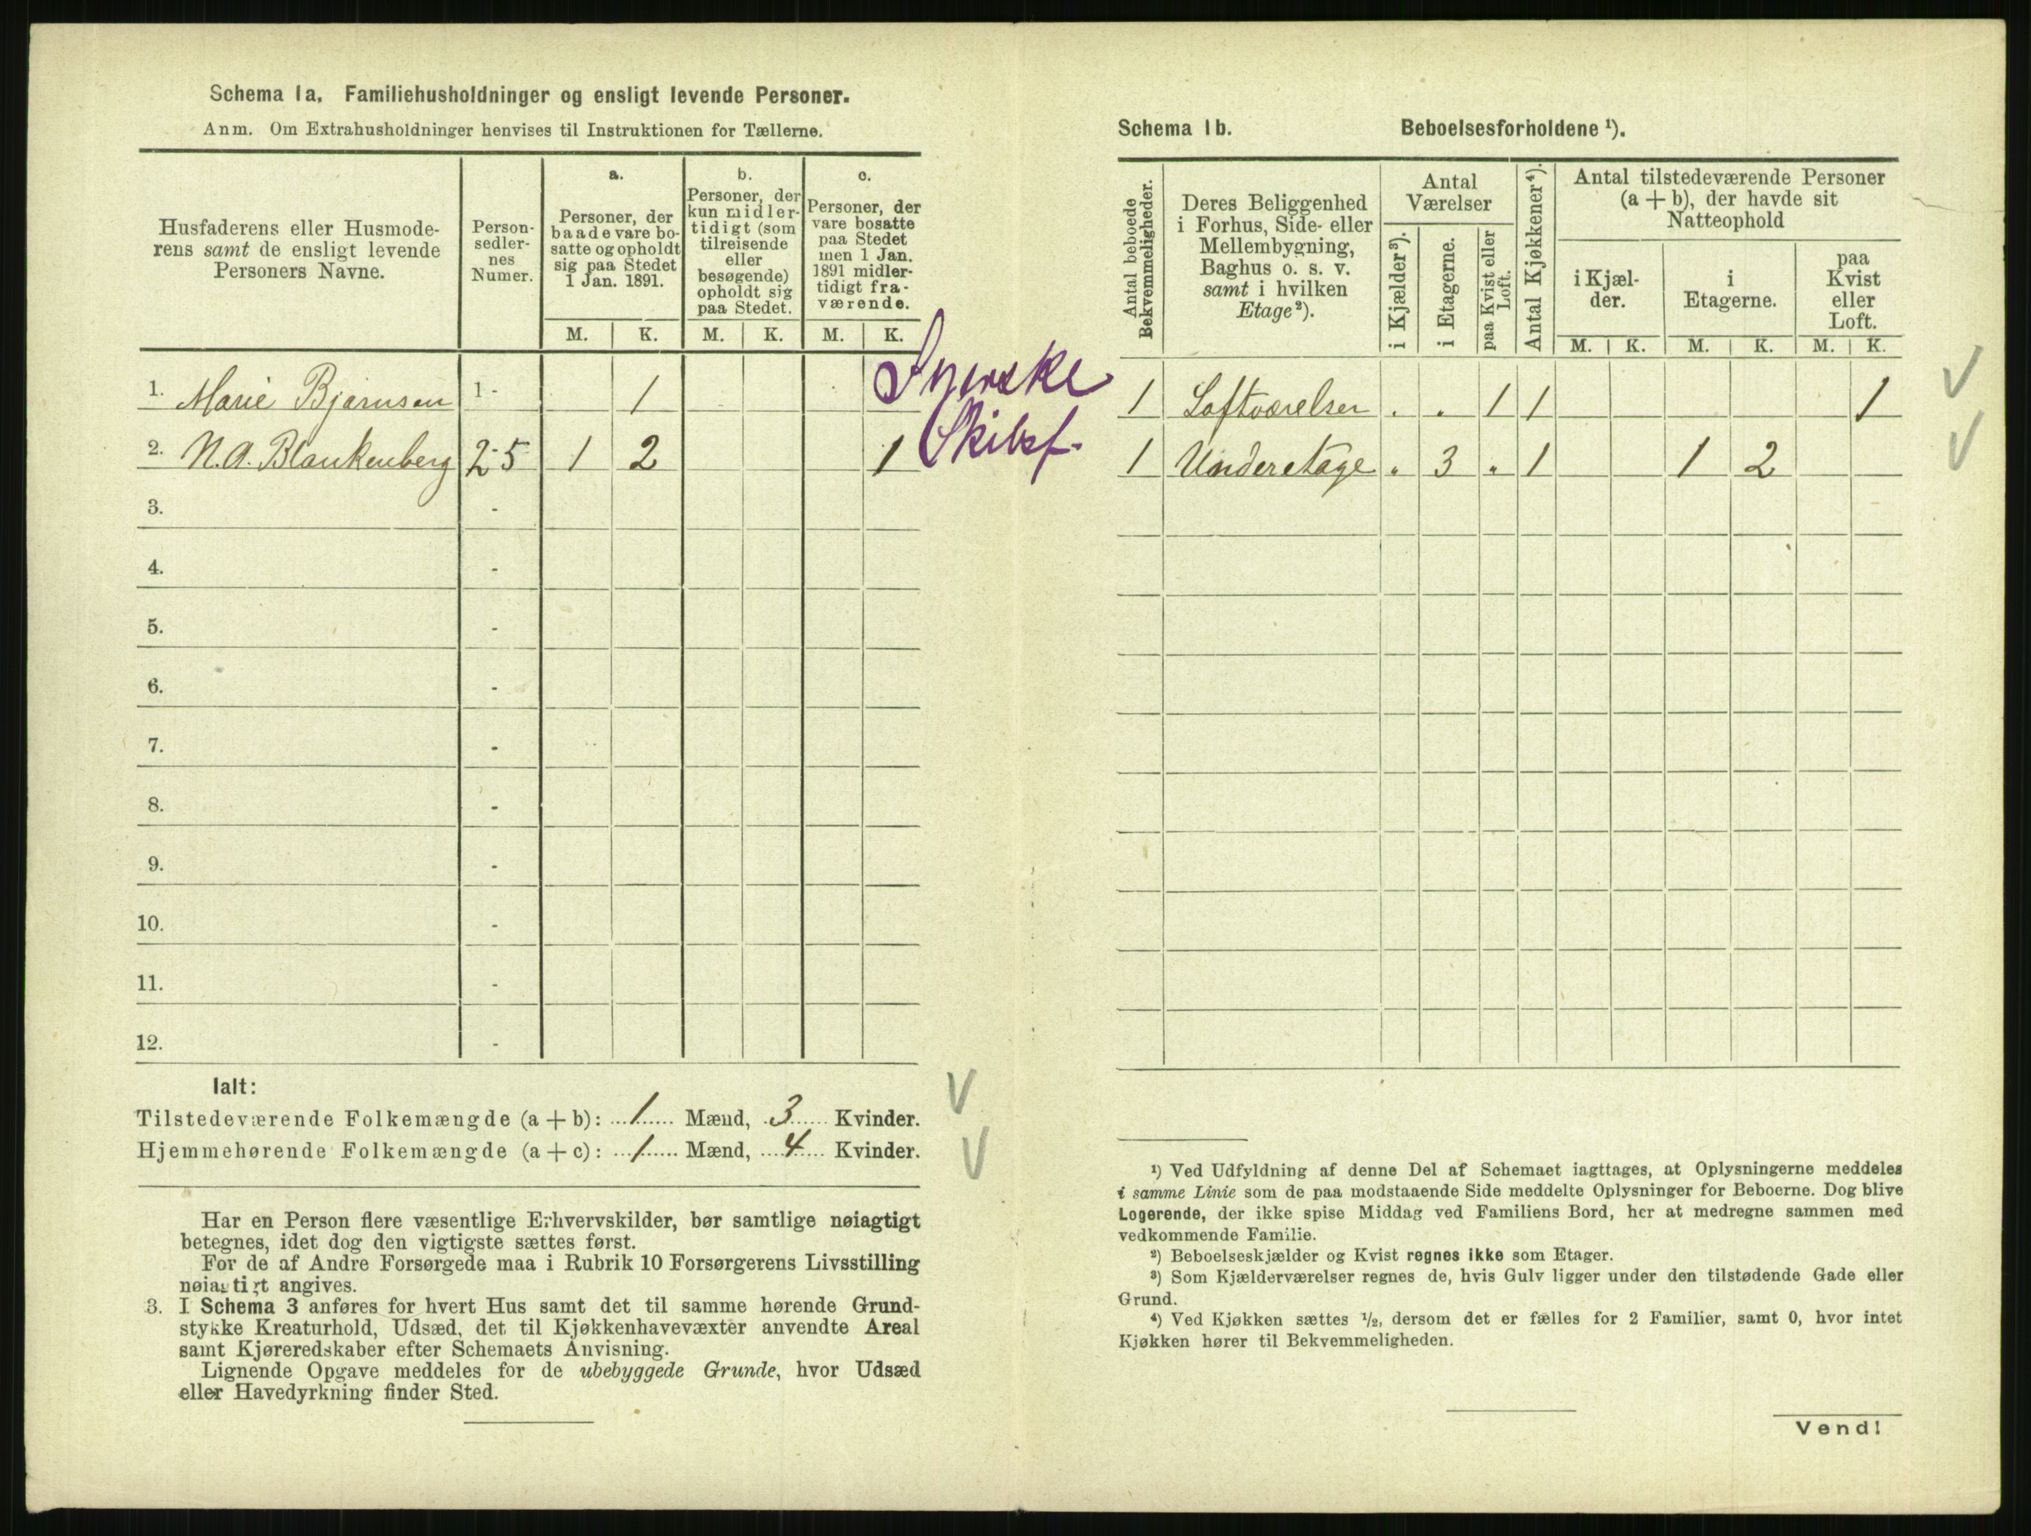 Schema 1a. Familiehusholdninger og ensligt levende Personer.
Anm. Om Extrahusholdninger henvises til Instruktionen for Tællerne.
Husfaderens eller Husmode-
rens samt de ensligt levende
Personers Navne.
Person-
sedler-
nes
Numer.
a.
Personer, der
baade vare bo-
satte og opholdt
sig paa Stedet
1 Jan. 1891.
b.
Personer, der
kun midler-
tidigt (som
tilreisende
eller
besøgende)
opholdt sig
paa Stedet.
c.
Personer, der
vare bosatte
paa Stedet
men 1 Jan.
1891 midler-
tidigt fra-
værende.
M. K. M. K. M. K.
1. Marie Bjørnsen 1 - 1
2. N.A. Blankenberg 2-5 1 2 1
Svenske
Skibsf.
3. -
4. -
5. -
6. -
7. -
8. -
9. -
10. -
11. -
12. -
Ialt:
Tilstedeværende Folkemængde (a + b): 1 Mænd, 3 Kvinder. V
Hjemmehørende Folkemængde (a + c): 1 Mænd, 4 Kvinder. V
Har en Person flere væsentlige Erhvervskilder, bør samtlige nøiagtigt
betegnes, idet dog den vigtigste sættes først.
For de af Andre Forsørgede maa i Rubrik 10 Forsørgerens Livsstilling
nøiagtigt angives.
3. I Schema 3 anføres for hvert Hus samt det til samme hørende Grund-
stykke Kreaturhold, Udsæd, det til Kjøkkenhavevæxter anvendte Areal
samt Kjøreredskaber efter Schemaets Anvisning.
Lignende Opgave meddeles for de ubebyggede Grunde, hvor Udsæd
eller Havedyrkning finder Sted.
Schema 1b. Beboelsesforholdene ¹).
Antal beboede
Bekvemmeligheder.
Deres Beliggenhed
i Forhus, Side- eller
Mellembygning,
Baghus o. s. v.
samt i hvilken
Etage ²).
Antal
Værelser
i Kjælder ³).
i Etagerne.
paa Kvist eller
Loft.
Antal Kjøkkener ⁴).
Antal tilstedeværende Personer
(a + b), der havde sit
Natteophold
i Kjæl-
der.
i
Etagerne.
paa
Kvist
eller
Loft.
M. K. M. K. M. K.
1 Loftværelser . . 1 1 1 V
1 Underetage „ 3 „ 1 1 2 V
¹) Ved Udfyldning af denne Del af Schemaet iagttages, at Oplysningerne meddeles
i samme Linie som de paa modstaaende Side meddelte Oplysninger for Beboerne. Dog blive
Logerende, der ikke spise Middag ved Familiens Bord, her at medregne sammen med
vedkommende Familie.
²) Beboelseskjælder og Kvist regnes ikke som Etager.
³) Som Kjælderværelser regnes de, hvis Gulv ligger under den tilstødende Gade eller
Grund.
⁴) Ved Kjøkken sættes ½, dersom det er fælles for 2 Familier, samt 0, hvor intet
Kjøkken hører til Bekvemmeligheden.
Vend!